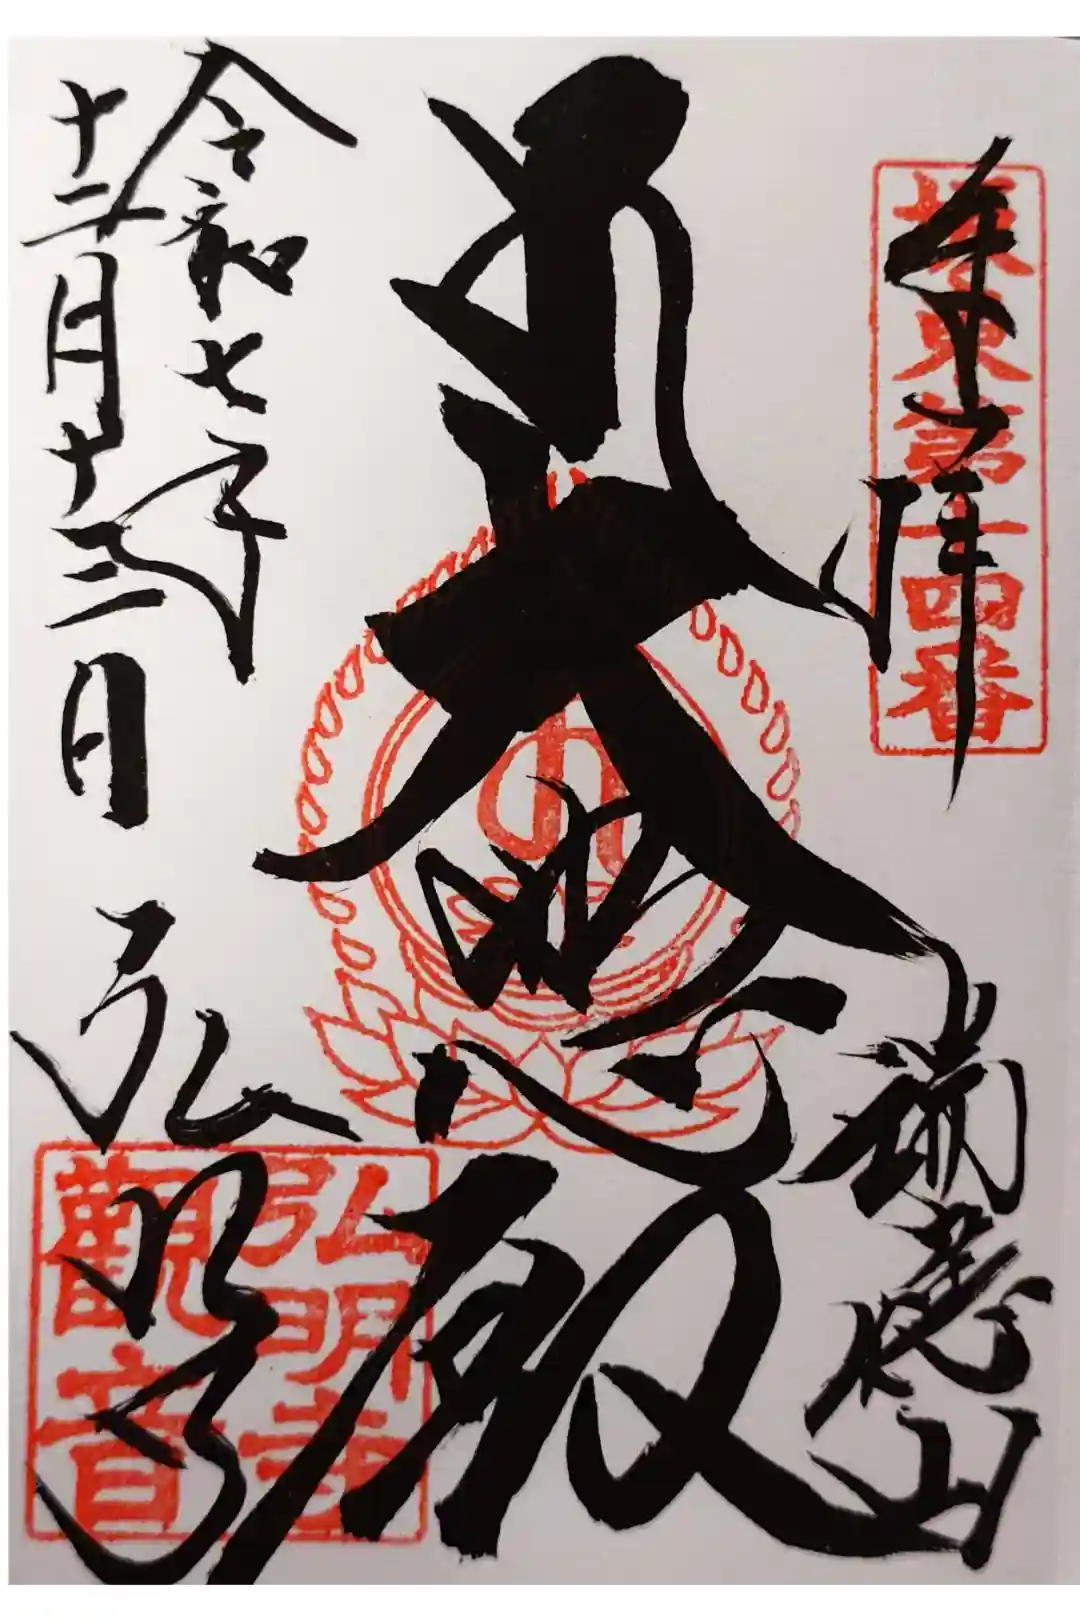 奉拝
坂東第十四番
瑞應山
大悲殿
令和七年
十二月十三日
弘明寺
弘明寺
觀音